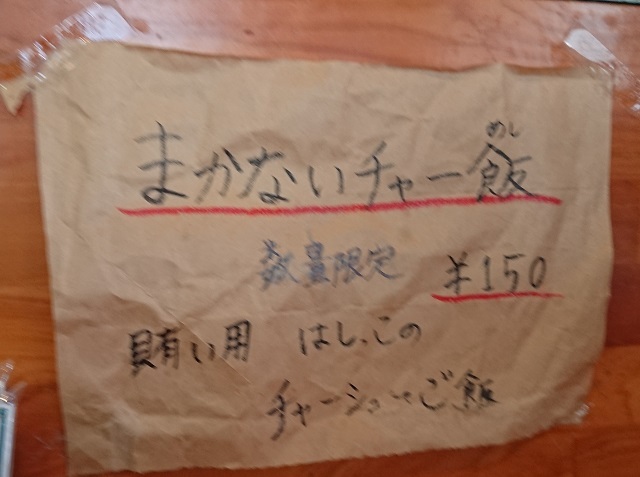 めし
まかないチャー飯
数量限定 ¥150
賄い用 はしっこの
チャーシューご飯